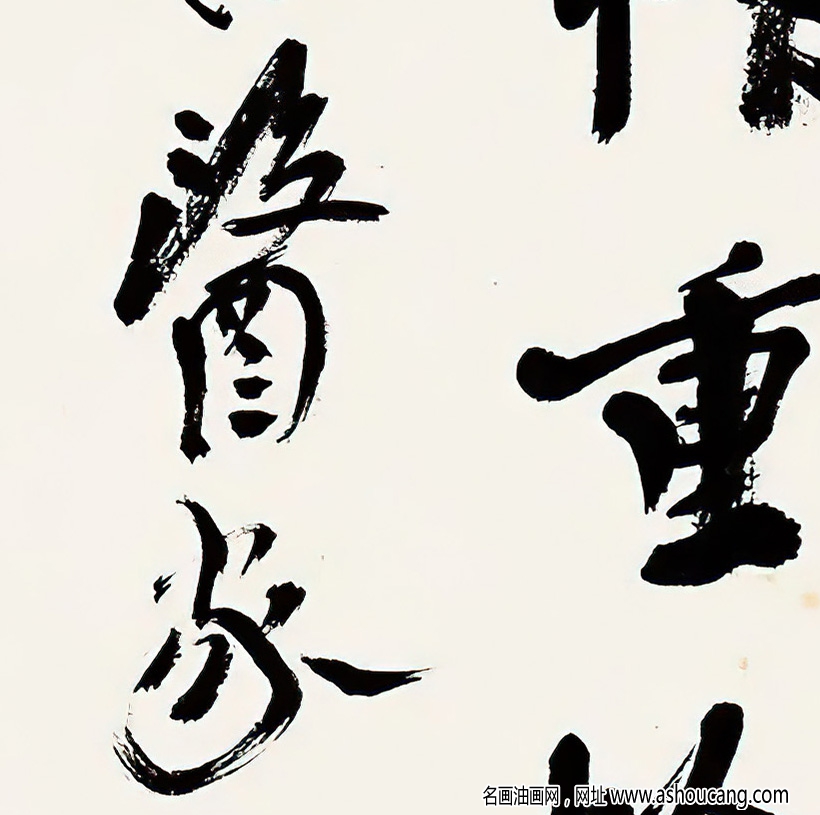 重
醫家
名画油画网，网址 www.ashoucang.com